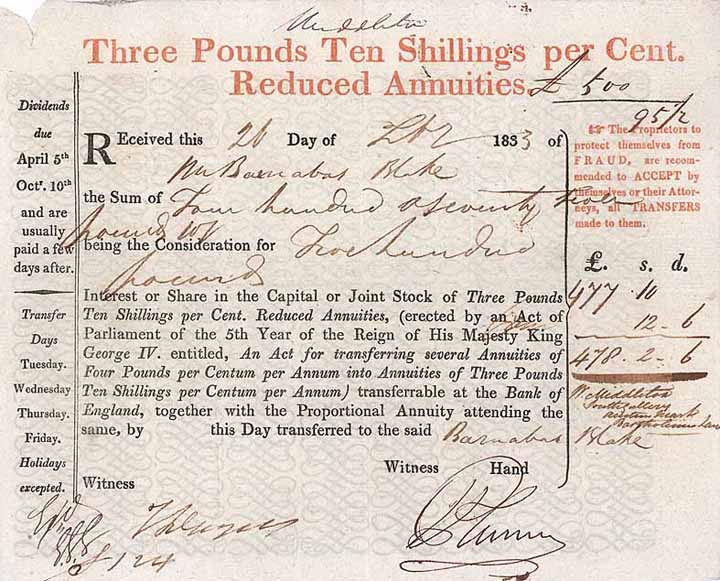 Middleton
Three Pounds Ten Shillings per Cent.
Reduced Annuities. £ 500
95 1/2
Dividends
due
April 5th
Octr. 10th
and are
usually
paid a few
days after.
Transfer
Days
Tuesday.
Wednesday
Thursday.
Friday.
Holidays
excepted.
REceived this 26 Day of 1833 of
Mr Barnabas Blake
the Sum of Four hundred & seventy seven
pounds 10/
being the Consideration for Five hundred
pounds
Interest or Share in the Capital or Joint Stock of Three Pounds
Ten Shillings per Cent. Reduced Annuities, (erected by an Act of
Parliament of the 5th Year of the Reign of His Majesty King
George IV. entitled, An Act for transferring several Annuities of
Four Pounds per Centum per Annum into Annuities of Three Pounds
Ten Shillings per Centum per Annum) transferrable at the Bank of
England, together with the Proportional Annuity attending the
same, by this Day transferred to the said Barnabas Blake
Witness Hand
Witness
☞ The Proprietors to
protect themselves from
FRAUD, are recom-
mended to ACCEPT by
themselves or their Attor-
neys, all TRANSFERS
made to them.
£. s. d.
477 . 10
12 . 6
478 . 2 . 6
W. Middleton
124